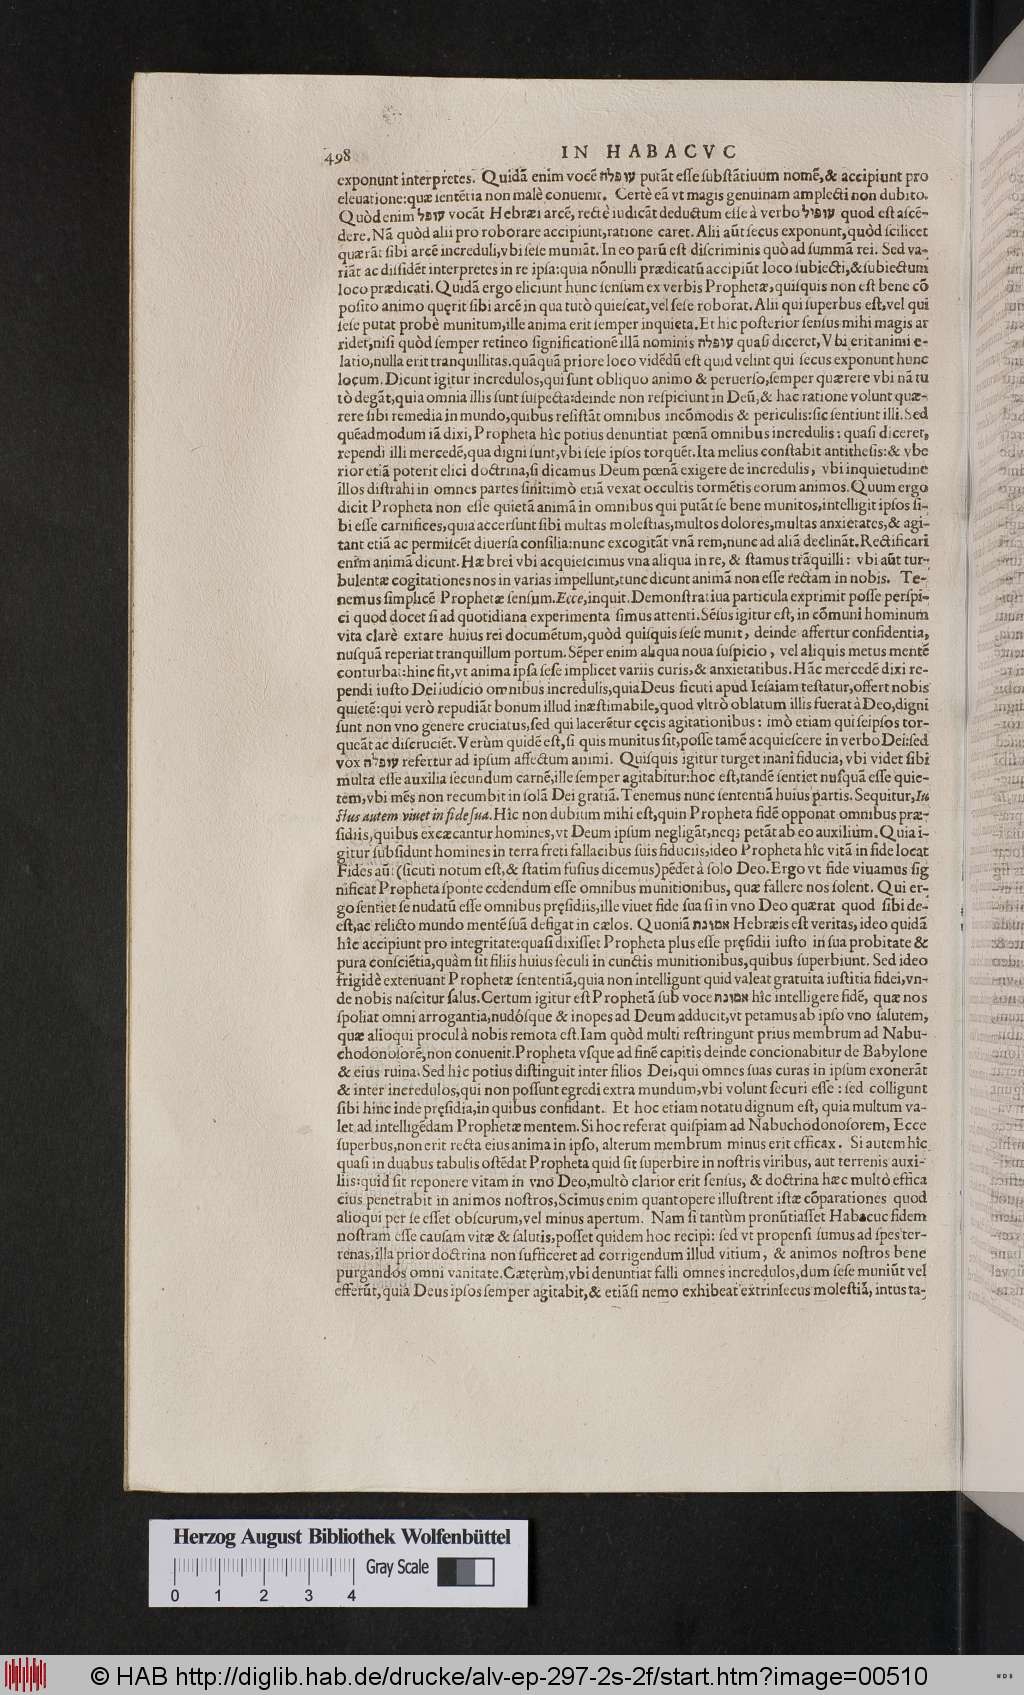 498
IN HABACVC
exponunt interpretes. Quidã enim vocẽ עופלה putãt eſſe ſubſtãtiuum nomẽ, & accipiunt pro
eleuatione: quæ ſentẽtia non malè conuenit. Certè eã vt magis genuinam amplecti non dubito.
Quòd enim עופל vocãt Hebræi arcẽ, rectè iudicãt deductum eſſe à verbo עופיל quod eſt aſcẽ-
dere. Nã quòd alii pro roborare accipiunt, ratione caret. Alii aũt ſecus exponunt, quòd ſcilicet
quærãt ſibi arcẽ increduli, vbi ſeſe muniãt. In eo parũ eſt diſcriminis quò ad ſummã rei. Sed va-
riãt ac diſſidẽt interpretes in re ipſa: quia nõnulli prædicatũ accipiũt loco ſubiecti, & ſubiectum
loco prædicati. Quidã ergo eliciunt hunc ſenſum ex verbis Prophetæ, quiſquis non eſt bene cõ
poſito animo quęrit ſibi arcẽ in qua tutò quieſcat, vel ſeſe roborat. Alii qui ſuperbus eſt, vel qui
ſeſe putat probè munitum, ille anima erit ſemper inquieta. Et hic poſterior ſenſus mihi magis ar
ridet, niſi quòd ſemper retineo ſignificationẽ illã nominis עופלה quaſi diceret, Vbi erit animi e-
latio, nulla erit tranquillitas. quãquã priore loco vidẽdũ eſt quid velint qui ſecus exponunt hunc
locum. Dicunt igitur incredulos, qui ſunt obliquo animo & peruerſo, ſemper quærere vbi nã tu
tò degãt, quia omnia illis ſunt ſuſpecta: deinde non reſpiciunt in Deũ, & hac ratione volunt quæ-
rere ſibi remedia in mundo, quibus reſiſtãt omnibus incõmodis & periculis: ſic ſentiunt illi. Sed
quẽadmodum iã dixi, Propheta hîc potius denuntiat pœnã omnibus incredulis: quaſi diceret,
rependi illi mercedẽ, qua digni ſunt, vbi ſeſe ipſos torquẽt. Ita melius conſtabit antitheſis: & vbe
rior etiã poterit elici doctrina, ſi dicamus Deum pœnã exigere de incredulis, vbi inquietudine
illos diſtrahi in omnes partes ſinit: imò etiã vexat occultis tormẽtis eorum animos. Quum ergo
dicit Propheta non eſſe quietã animã in omnibus qui putãt ſe bene munitos, intelligit ipſos ſi-
bi eſſe carnifices, quia accerſunt ſibi multas moleſtias, multos dolores, multas anxietates, & agi-
tant etiã ac permiſcẽt diuerſa conſilia: nunc excogitãt vnã rem, nunc ad aliã declinãt. Rectificari
enim animã dicunt. Hæbrei vbi acquieſcimus vna aliqua in re, & ſtamus trãquilli: vbi aũt tur-
bulentæ cogitationes nos in varias impellunt, tunc dicunt animã non eſſe rectam in nobis. Te-
nemus ſimplicẽ Prophetæ ſenſum. Ecce, inquit. Demonſtratiua particula exprimit poſſe perſpi-
ci quod docet ſi ad quotidiana experimenta ſimus attenti. Sẽſus igitur eſt, in cõmuni hominum
vita clarè extare huius rei documẽtum, quòd quiſquis ſeſe munit, deinde affertur confidentia,
nuſquã reperiat tranquillum portum. Sẽper enim aliqua noua ſuſpicio, vel aliquis metus mentẽ
conturbat: hinc fit, vt anima ipſa ſeſe implicet variis curis, & anxietatibus. Hãc mercedẽ dixi re-
pendi iuſto Dei iudicio omnibus incredulis, quia Deus ſicuti apud Ieſaiam teſtatur, offert nobis
quietẽ: qui verò repudiãt bonum illud inæſtimabile, quod vltrò oblatum illis fuerat à Deo, digni
ſunt non vno genere cruciatus, ſed qui lacerẽtur cęcis agitationibus: imò etiam qui ſeipſos tor-
queãt ac diſcruciẽt. Verùm quidẽ eſt, ſi quis munitus ſit, poſſe tamẽ acquieſcere in verbo Dei: ſed
vox עופלה refertur ad ipſum affectum animi. Quiſquis igitur turget inani fiducia, vbi videt ſibi
multa eſſe auxilia ſecundum carnẽ, ille ſemper agitabitur: hoc eſt, tandẽ ſentiet nuſquã eſſe quie-
tem, vbi mẽs non recumbit in ſolã Dei gratiã. Tenemus nunc ſententiã huius partis. Sequitur, Iu
ſtus autem viuet in fide ſua. Hîc non dubium mihi eſt, quin Propheta fidẽ opponat omnibus præ-
ſidiis, quibus excæcantur homines, vt Deum ipſum negligãt, neq; petãt ab eo auxilium. Quia i-
gitur ſubſidunt homines in terra freti fallacibus ſuis fiduciis, ideo Propheta hîc vitã in fide locat
Fides aũt (ſicuti notum eſt, & ſtatim fuſius dicemus) pẽdet à ſolo Deo. Ergo vt fide viuamus ſig
nificat Propheta ſponte cedendum eſſe omnibus munitionibus, quæ fallere nos ſolent. Qui er-
go ſentiet ſe nudatũ eſſe omnibus pręſidiis, ille viuet fide ſua ſi in vno Deo quærat quod ſibi de-
eſt, ac relicto mundo mentẽ ſuã defigat in cælos. Quoniã אמונת Hebræis eſt veritas, ideo quidã
hîc accipiunt pro integritate: quaſi dixiſſet Propheta plus eſſe pręſidii iuſto in ſua probitate &
pura conſciẽtia, quàm ſit filiis huius ſeculi in cunctis munitionibus, quibus ſuperbiunt. Sed ideo
frigidè extenuant Prophetæ ſententiã, quia non intelligunt quid valeat gratuita iuſtitia fidei, vn-
de nobis naſcitur ſalus. Certum igitur eſt Prophetã ſub voce אמונת hîc intelligere fidẽ, quæ nos
ſpoliat omni arrogantia, nudóſque & inopes ad Deum adducit, vt petamus ab ipſo vno ſalutem,
quæ alioqui procul à nobis remota eſt. Iam quòd multi reſtringunt prius membrum ad Nabu-
chodonoſorẽ, non conuenit. Propheta vſque ad finẽ capitis deinde concionabitur de Babylone
& eius ruina. Sed hîc potius diſtinguit inter filios Dei, qui omnes ſuas curas in ipſum exonerãt
& inter incredulos, qui non poſſunt egredi extra mundum, vbi volunt ſecuri eſſe: ſed colligunt
ſibi hinc inde pręſidia, in quibus confidant. Et hoc etiam notatu dignum eſt, quia multum va-
let ad intelligẽdam Prophetæ mentem. Si hoc referat quiſpiam ad Nabuchodonoſorem, Ecce
ſuperbus, non erit recta eius anima in ipſo, alterum membrum minus erit efficax. Si autem hîc
quaſi in duabus tabulis oſtẽdat Propheta quid ſit ſuperbire in noſtris viribus, aut terrenis auxi-
liis: quid ſit reponere vitam in vno Deo, multò clarior erit ſenſus, & doctrina hæc multò effica
cius penetrabit in animos noſtros, Scimus enim quantopere illuſtrent iſtæ cõparationes quod
alioqui per ſe eſſet obſcurum, vel minus apertum. Nam ſi tantùm pronũtiaſſet Habacuc fidem
noſtram eſſe cauſam vitæ & ſalutis, poſſet quidem hoc recipi: ſed vt propenſi ſumus ad ſpes ter-
renas, illa prior doctrina non ſufficeret ad corrigendum illud vitium, & animos noſtros bene
purgandos omni vanitate. Cæterùm, vbi denuntiat falli omnes incredulos, dum ſeſe muniũt vel
efferũt, quia Deus ipſos ſemper agitabit, & etiãſi nemo exhibeat extrinſecus moleſtiã, intus ta-
Herzog August Bibliothek Wolfenbüttel
Gray Scale
0 1 2 3 4
© HAB http://diglib.hab.de/drucke/alv-ep-297-2s-2f/start.htm?image=00510
WDB